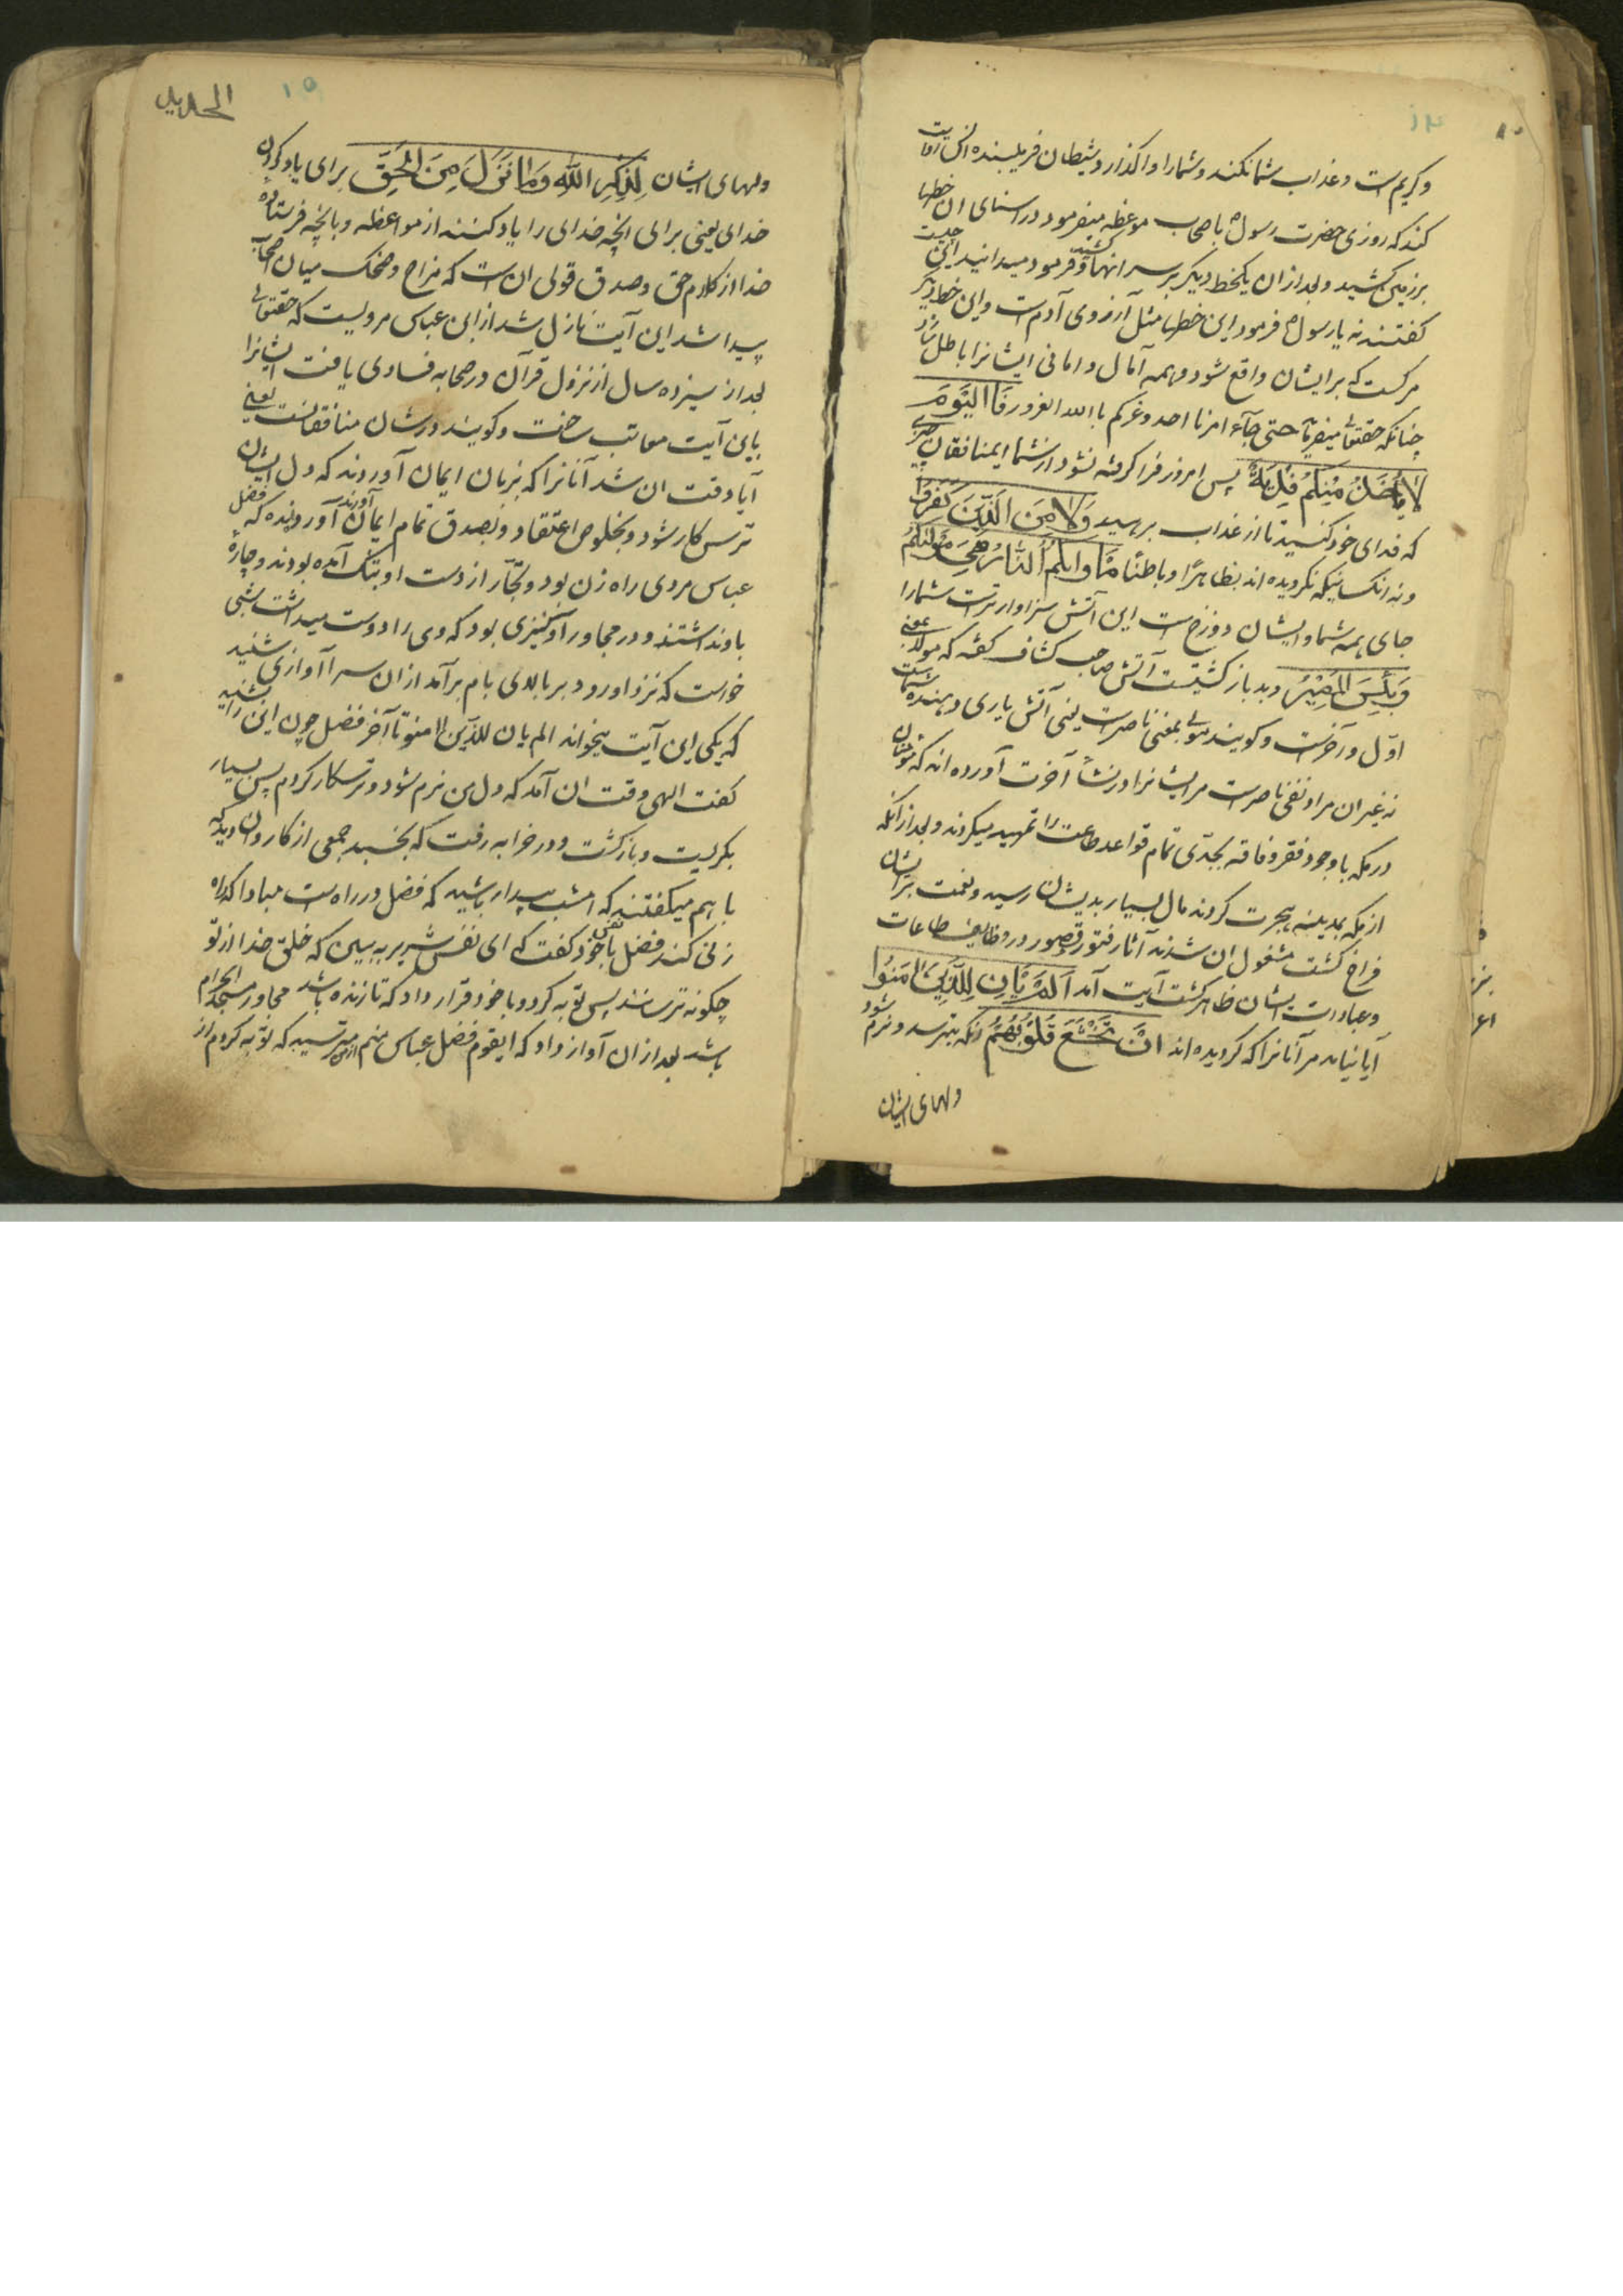 ۱۴
و کریم است و عذاب شما نکند و شما را واگذارد و شیطان فریبنده
کند که روزی حضرت رسول با صحاب موعظه میفرمود در اسنای ان خطها
بر زمین کشید و بعد ازان یکخط دیگر بر سر انها کشید و فرمود میدانید این چیست
کفتند نه یا رسول فرمود این خطها مثل آرزوی آدم است و این خط دیکر
مرکست که بر ایشان واقع شود و همه آمال و امانی ایشانرا باطل سازد
چنانکه حقتعالی میفرماید حتی جآء امرنا احد و غرکم باالله الغرور فَاالْیَوْمَ
لَا یُؤْخَذُ مِنْکُمْ فِدْیَةٌ پس امروز فرا کرفته نشود از شما ایمنافقان چیزی
که فدای خود کنید تا از عذاب برهید وَلَا مِنَ الَّذِیْنَ کَفَرُوْا
و نه انکسانیکه نکرویده اند بظاهرًا و باطنًا مَاْوٰیکُمُ النَّارُ هِیَ مَوْلٰیکُمْ
جای همه شما و ایشان دوزخ است این آتش سزاوارترست شما را
وَبِئْسَ الْمَصِیْرُ و بد باز کشتیست آتش صاحب کشاف کفته که مولا یعنی
اوّل و آخرست و کویند مولی بمعنی ناصرست یعنی آتش یاری دهنده شماست
نه غیر ان مراد نفی ناصرست مر ایشانرا در نشأ آخرت آورده اند که مؤمنان
در مکه باوجود فقر و فاقه بجدّی تمام قواعد طاعت را تمهید میکردند و بعد ازانکه
از مکه بمدینه هجرت کردند مال بسیار بدیشان رسید و نعمت بر ایشان
فراخ کشت مشغول ان شدند آثار فتور و قصور در وظایف طاعات
و عبادات ایشان ظاهر کشت آیت آمد اَلَمْ یَاْنِ لِلَّذِیْنَ اٰمَنُوْا
آیا نیامد مر آنانرا که کرویده اند اَنْ تَخْشَعَ قُلُوْبُهُمْ انکه بترسد و نرم شود
دلهای ایشان
الحدید
۱۵
دلهای ایشان لِذِکْرِ اللّٰهِ وَمَا نَزَلَ مِنَ الْحَقِّ برای یاد کردن
خدای یعنی برای انچه خدای را یاد کنند از مواعظه و بانچه فرستاده
خدا از کلام حق و صدق قولی ان است که مزاح و ضحک میان اصحاب
پیدا شد این آیت نازل شد از ابن عباس مرویست که حقتعالی
بعد از سیزده سال از نزول قرآن در صحابه فسادی یافت ایشانرا
باین آیت معاتب ساخت و کویند در شان منافقانست یعنی
آیا وقت ان نشد آنانرا که بزبان ایمان آوردند که دل ایشان
ترس کار شود و بخلوص اعتقاد و بصدق تمام ایمان آورند آورده‌اند که فضل
عباس مردی راه زن بود و تجّار از دست او بتنک آمده بودند و چارهٔ
باو نداشتند و در مجاور او کنیزی بود که وی را دوست میداشت شبی
خواست که نزد او رود بر بالای بام بر آمد ازان سرا آوازی شنید
که یکی این آیت میخواند الم یان للذین امنوا تا آخر فضل چون این را بشنید
کفت الهی وقت ان آمد که دل من نرم شود و ترسکار کردم پس بسیار
بکریست و بازکشت و در خرابه رفت که بخسبد جمعی از کاروان دید که
با هم میکفتند که امشب بیدار باشید که فضل در راه است مبادا که راه
زنی کند فضل با نفس خود کفت که ای نفس شریر به بین که خلق خدا از تو
چکونه ترسانند پس توبه کرد و باخود قرار داد که تا زنده باشد مجاور مسجد الحرام
باشد بعد ازان آواز داد که ایقوم فضل عباس منم از من مترسید که توبه کردم از